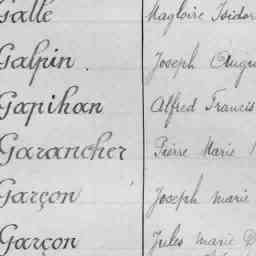 Galle Magloire Isidor
Galpin Joseph Augu
Gapihan Alfred Francis
Garancher Pierre Marie
Garçon Joseph marie
Garçon Jules marie